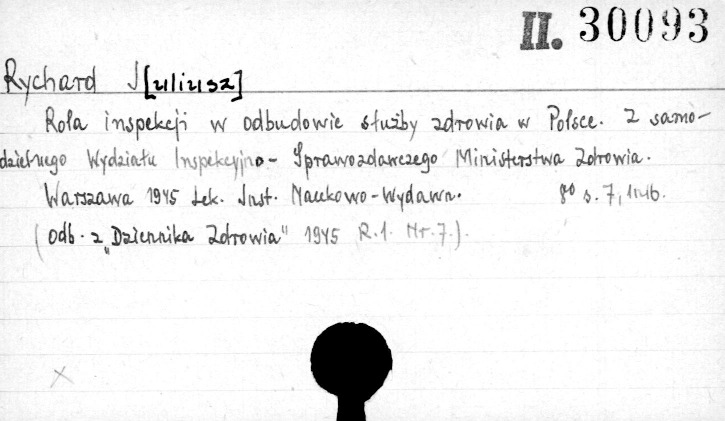 II. 30093
Rychard J[uliusz]
Rola inspekcji w odbudowie służby zdrowia w Polsce. Z samo-
dzielnego Wydziału Inspekcyjno - Sprawozdawczego Ministerstwa Zdrowia.
Warszawa 1945 Lek. Inst. Naukowo-Wydawn. 8º s. 7, 1nlb.
(odb. z „Dziennika Zdrowia" 1945 R.1. Nr.7.).
X